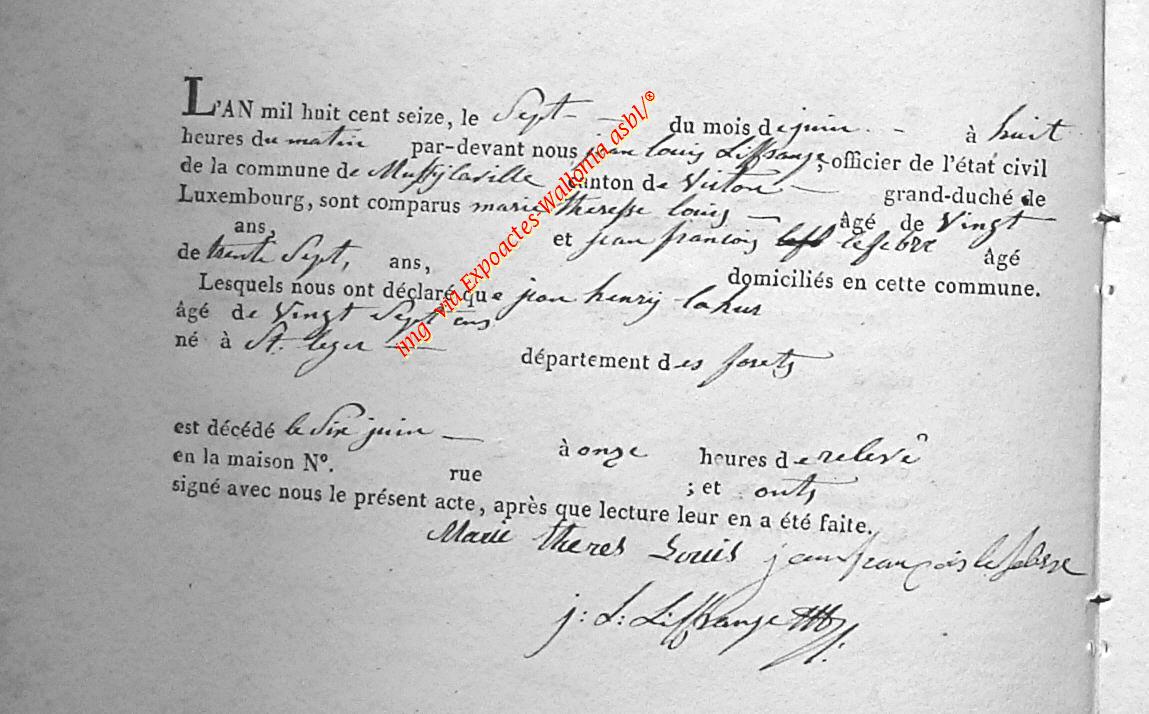 L'AN mil huit cent seize, le Sept du mois de juin à huit
heures du matin par-devant nous jean louis Liffrange, officier de l'état civil
de la commune de Mussylaville canton de Virton grand-duché de
Luxembourg, sont comparus marie theresse louis âgé de Vingt
ans, et jean francois lefebre âgé
de trente Sept, ans, domiciliés en cette commune.
Lesquels nous ont déclaré que jean henry lahus
âgé de Vingt Sept ans
né à St. leger département des forets
est décédé le Six juin à onze heures de relevé
en la maison N°. rue ; et onts
signé avec nous le présent acte, après que lecture leur en a été faite.
Marie theres Louis jean françois lefebre
j: L: Liffrange
img via Expoactes-Wallonia asbl/®